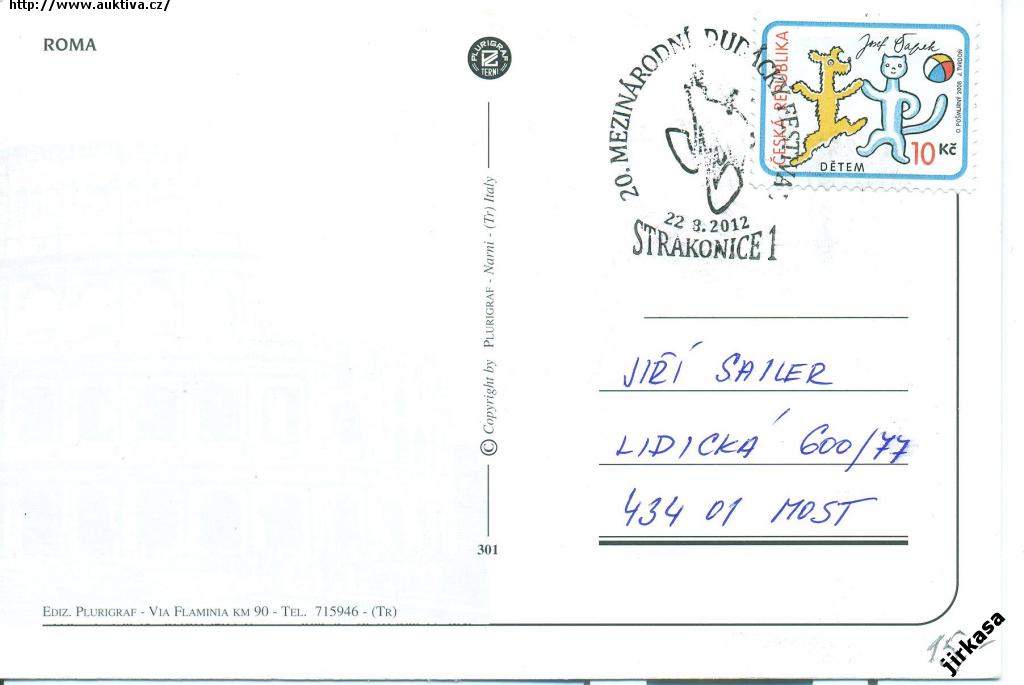 http://www.auktiva.cz/
ROMA
PLURIGRAF
TERNI
20. MEZINÁRODNÍ DUDÁCKÝ FESTIVAL
22 8.2012
STRAKONICE 1
ČESKÁ REPUBLIKA
Josef Čapek
DĚTEM
10 Kč
O. POŠMURNÝ 2008 J. TVRDOŇ
© Copyright by PLURIGRAF - Narni - (Tr) Italy
JIŘÍ SAILER
LIDICKÁ 600/77
434 01 MOST
301
EDIZ. PLURIGRAF - VIA FLAMINIA KM 90 - TEL. 715946 - (TR)
jirkasa